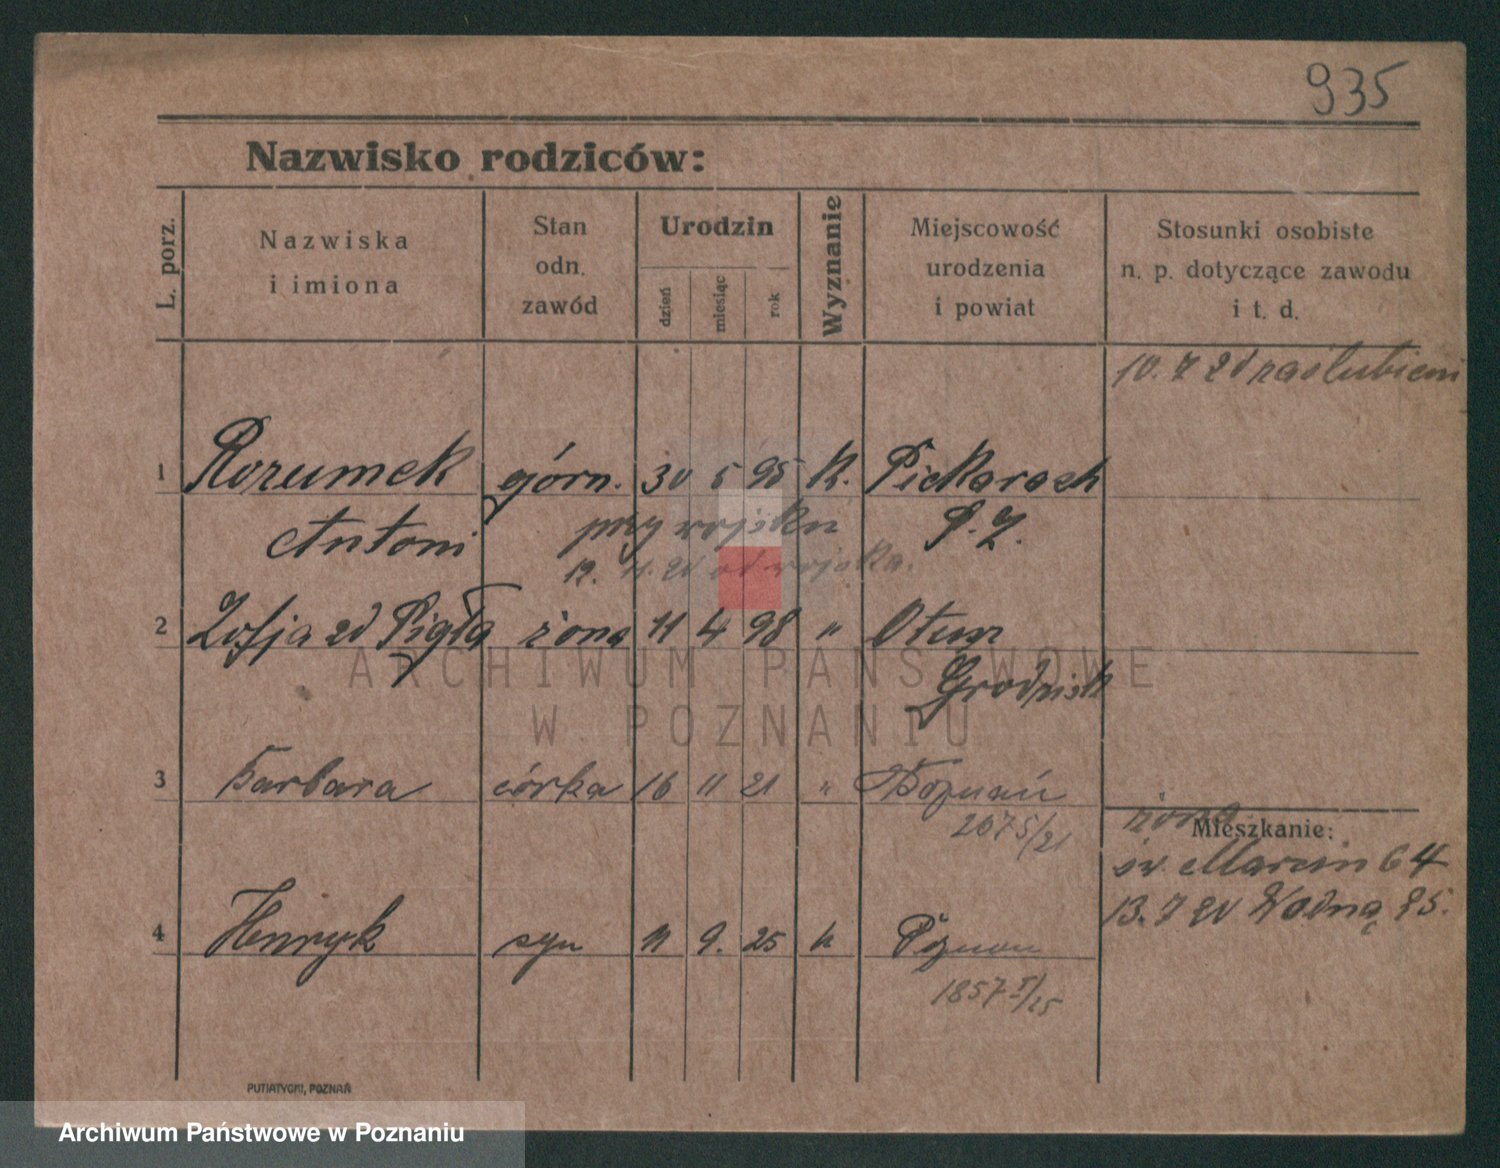 935
Nazwisko rodziców:
L. porz.
Nazwiska
i imiona
Stan
odn.
zawód
Urodzin
dzień
miesiąc
rok
Wyznanie
Miejscowość
urodzenia
i powiat
Stosunki osobiste
n. p. dotyczące zawodu
i t. d.
10. 7 20
1 Rozumek górn. 30 5 95 K. Piekarach
Antoni przy wojsku P. Z.
19. 11. 20 od wojska.
2 Zofja zd Pigła żona 11 4 98 " Otusz
Grodzisk
ARCHIWUM PAŃSTWOWE
W POZNANIU
3 Barbara córka 16 11 21 " Poznań
2675/21
żona
Mieszkanie:
św. Marcin 64
13. 7 20 Wodną 25.
4 Henryk syn 11 9. 25 k Poznań
1857 /25
PUTIATYCKI, POZNAŃ
Archiwum Państwowe w Poznaniu